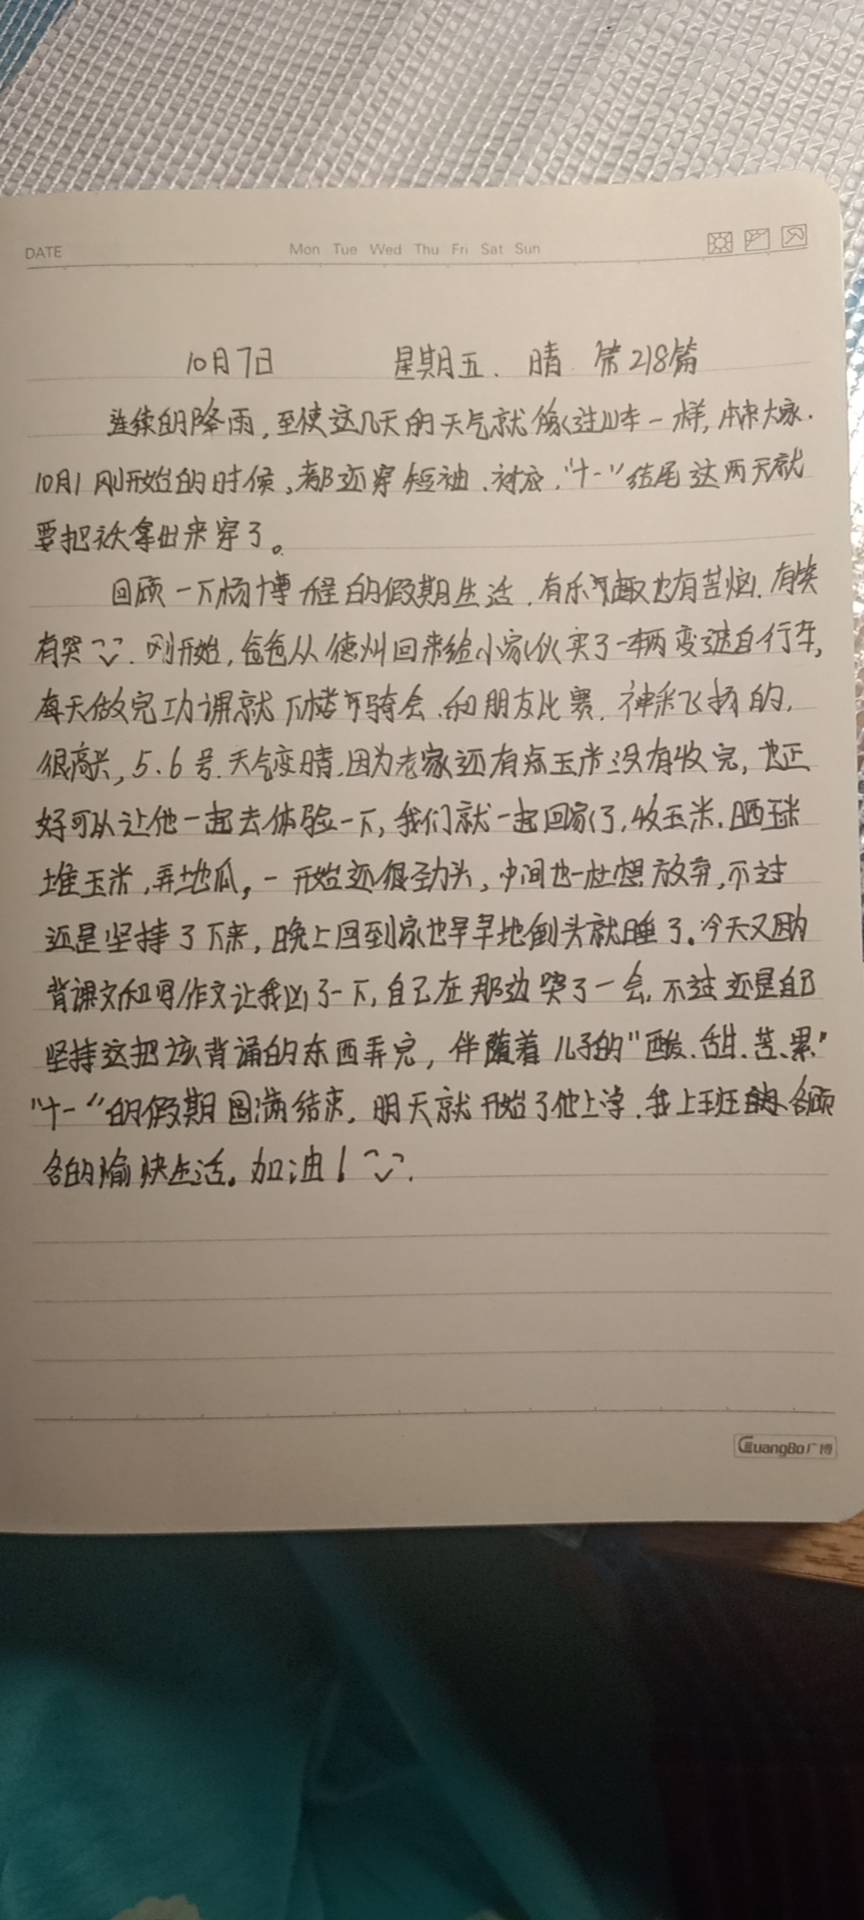 DATE
Mon Tue Wed Thu Fri Sat Sun
10月7日 星期五、晴 第218篇
连续的降雨,至使这几天的天气就像过山车一样,本来大家
10月1刚开始的时候,都还穿短袖、衬衣,"十一"结尾这两天就
要把袄拿出来穿了。
回顾一下杨博程的假期生活,有乐趣也有苦恼,有笑
有哭,刚开始,爸爸从德州回来给小家伙买了一辆变速自行车,
每天做完功课就下楼骑会,和朋友比赛,神采飞扬的,
很高兴,5.6号,天气变晴,因为老家还有点玉米没有收完,也正
好可以让他一起去体验一下,我们就一起回家了,收玉米,晒玉米
堆玉米,弄地瓜,一开始还很劲头,中间也一杜想放弃,不过
还是坚持了下来,晚上回到家也早早地倒头就睡了。今天又因为
背课文和写作文让我凶了一下,自己在那边哭了一会,不过还是自己
坚持这把该背诵的东西弄完,伴随着儿子的"酸、甜、苦、累"
"十一"的假期圆满结束,明天就开始了他上学,我上班各顾
各的愉快生活。加油!
GuangBo广博